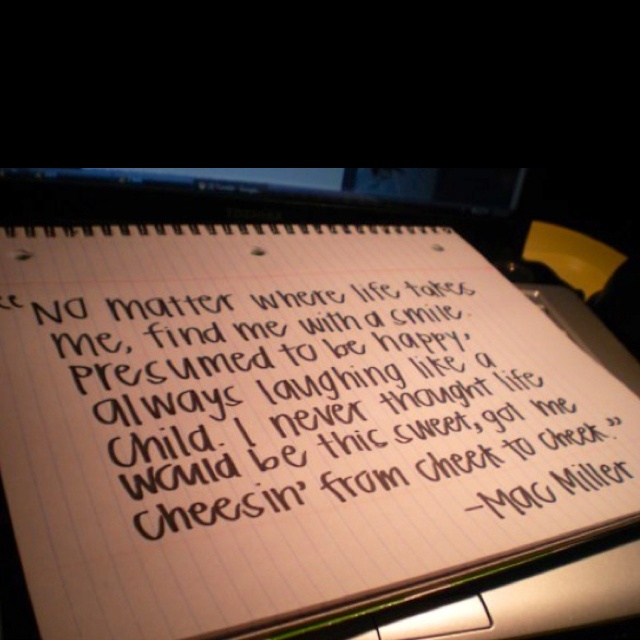 "No matter where life takes
me, find me with a smile.
Presumed to be happy,
always laughing like a
child. I never thought life
would be this sweet, got me
cheesin' from cheek to cheek."
-Mac Miller